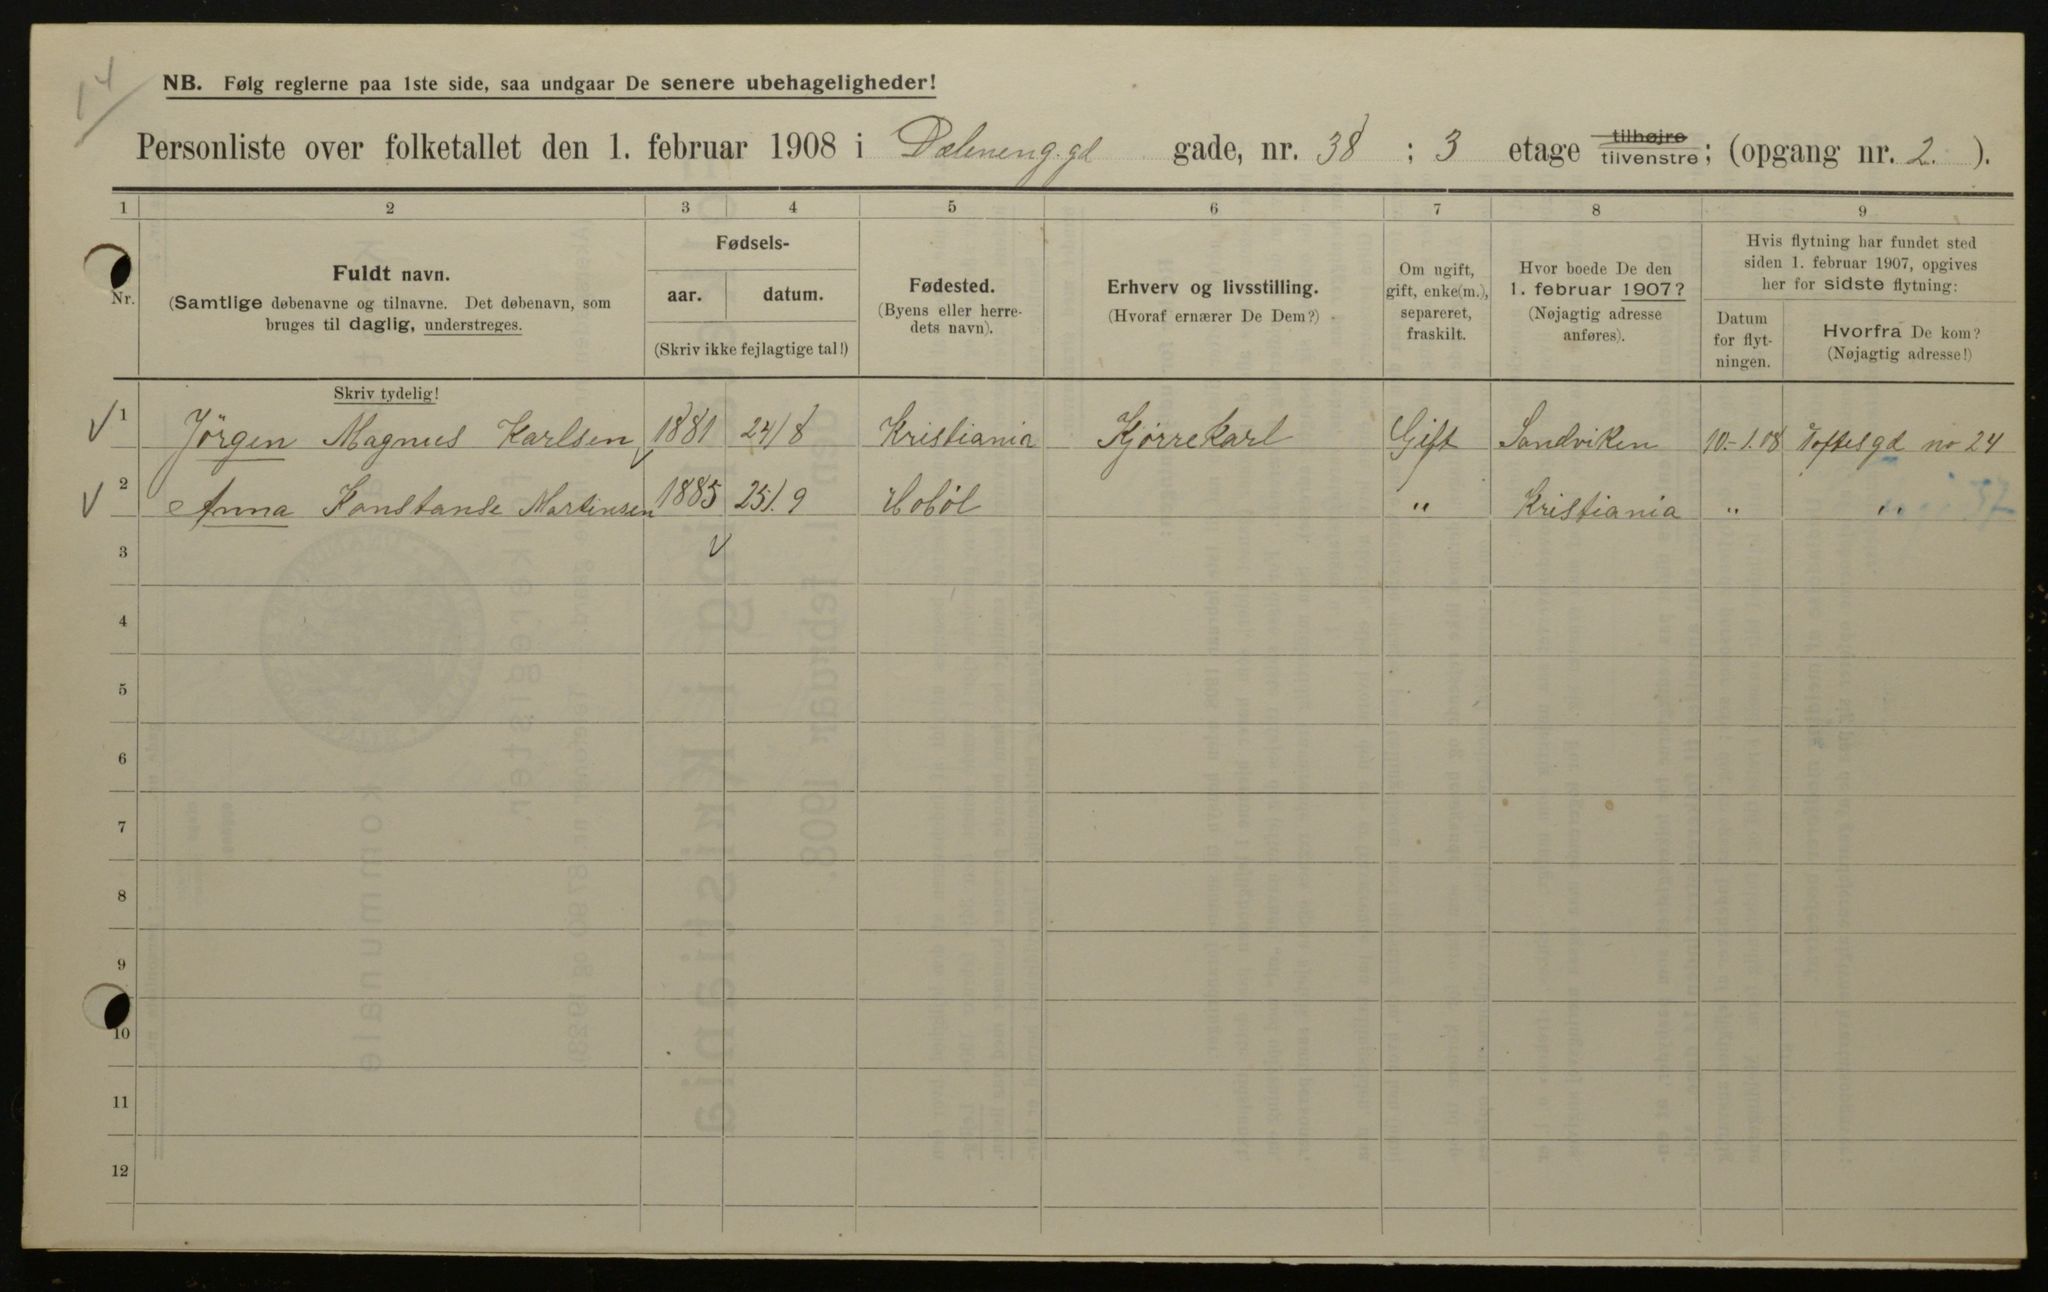 14
NB. Følg reglerne paa 1ste side, saa undgaar De senere ubehageligheder!
Personliste over folketallet den 1. februar 1908 i Dælneng.gd gade, nr. 38 ; 3 etage tilhøjre tilvenstre; (opgang nr. 2. ).
1 2 3 4 5 6 7 8 9
Nr.
Fuldt navn.
(Samtlige døbenavne og tilnavne. Det døbenavn, som
bruges til daglig, understreges.
Skriv tydelig!
Fødsels-
aar. datum.
(Skriv ikke fejlagtige tal!)
Fødested.
(Byens eller herre-
dets navn).
Erhverv og livsstilling.
(Hvoraf ernærer De Dem?)
Om ugift,
gift, enke(m.),
separeret,
fraskilt.
Hvor boede De den
1. februar 1907?
(Nøjagtig adresse
anføres).
Hvis flytning har fundet sted
siden 1. februar 1907, opgives
her for sidste flytning:
Datum
for flyt-
ningen.
Hvorfra De kom?
(Nøjagtig adresse!)
1 Jörgen Magnus Karlsen 1881 24/8 Kristiania Kjørrekarl Gift Sandviken 10.-1.08 Toftesgd no 24
2 Anna Konstanse Martinsen 1885 25/.9 Hobøl " Kristiania " "
3
4
5
6
7
8
9
10
11
12